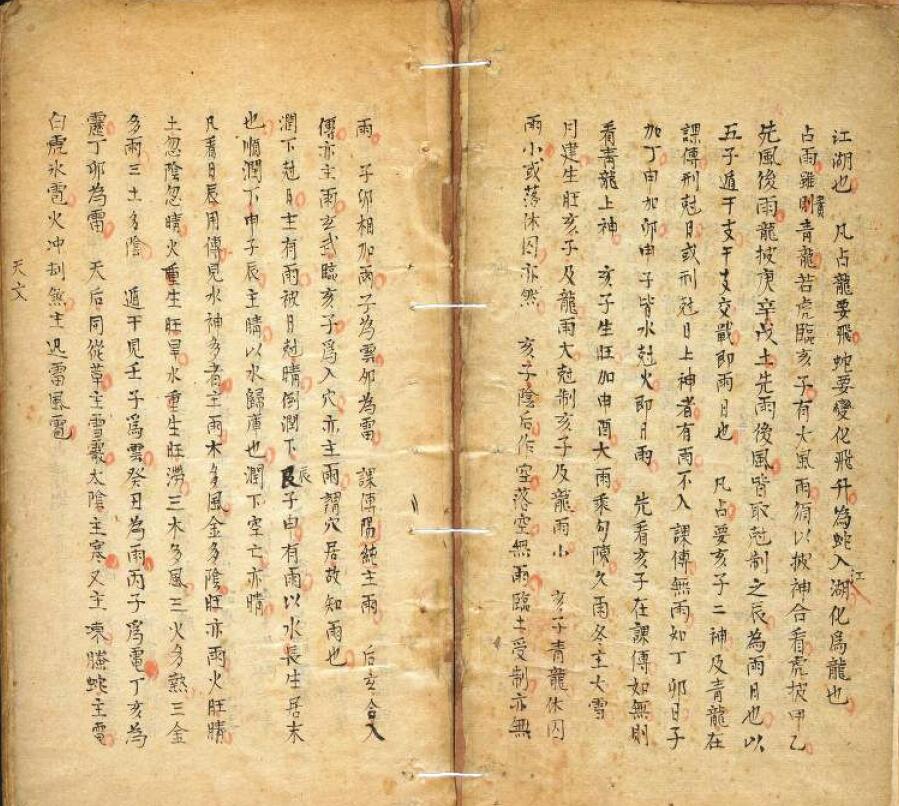 江湖也　凡占龍要飛蛇要變化飛升為蛇入江湖化為龍也
占雨雖則貴青龍若虎臨亥子有大風雨須以披神合看虎披甲乙
先風後雨龍披庚辛戊土先雨後風皆取尅制之辰為雨日也以
五子遁干支干支交戰即雨日也　凡占要亥子二神及青龍在
課傳刑尅日或刑尅日上神者有雨不入課傳無雨如丁卯日子
加丁申加卯申子皆水尅火即日雨　先看亥子在課傳如無則
看青龍上神　亥子生旺加申酉大雨乘勾陳久雨冬主大雪
月建生旺亥子及龍雨大尅制亥子及龍雨小　亥子青龍休囚
雨小或落休囚亦然　亥子陰后作空落空無雨臨土受制亦無
雨　子卯相加兩子為雲卯為雷　課傳陽純主雨　后玄合入
傳亦主雨玄武臨亥子為入穴亦主雨謂穴居故知雨也
潤下尅日主有雨被日尅晴倒潤下辰子申有雨以水長生居末
也順潤下申子辰主晴以水歸庫也潤下空亡亦晴
凡看日辰用傳見水神多者主雨木多風金多陰旺亦雨火旺晴
土忽陰忽晴火重生旺旱水重生旺澇三木多風三火多熱三金
多雨三土多陰　遁干見壬子為雲癸丑為雨丙子為電丁亥為
霆丁卯為雷　天后同從革主雪霰太陰主寒又主凍螣蛇主電
白虎氷雹火冲刑煞主迅雷風雹
天文